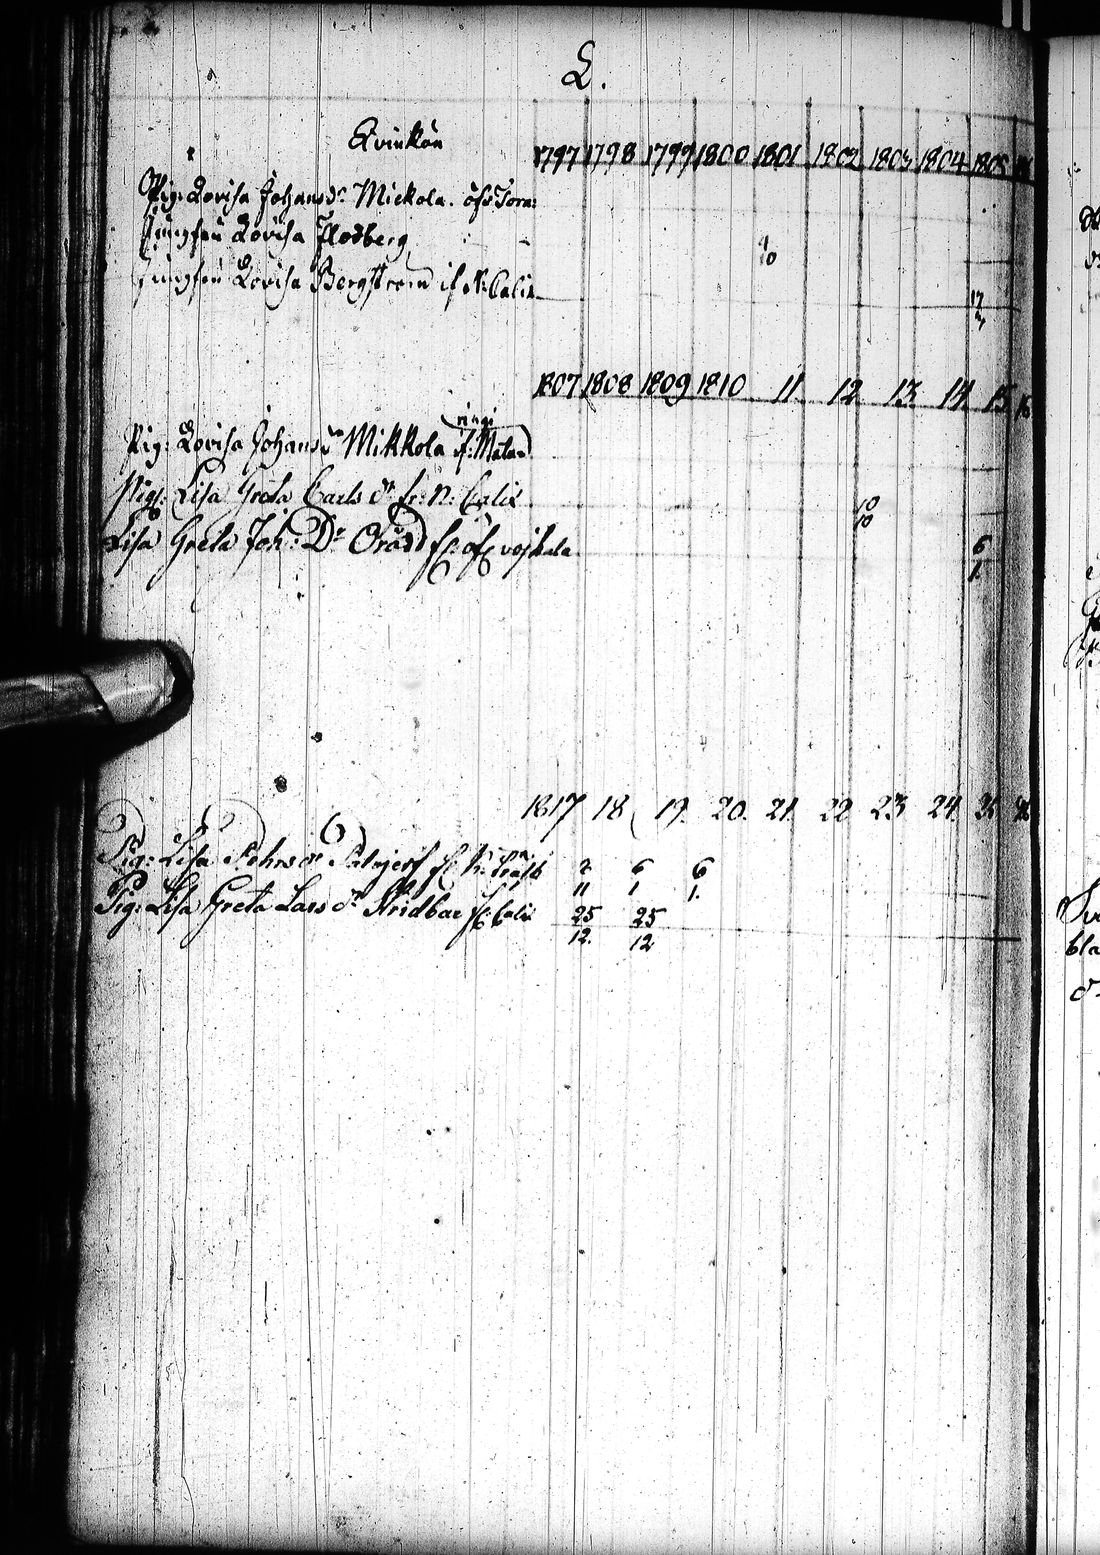 L.
Qvinkön 1797 1798 1799 1800 1801 1802 1803 1804 1805
Pig: Lovisa Johansdr Mickola. öfr Torn:
Jungfru Lovisa Flodberg 4 10
Jungfru Lovisa Bergström if N: Calix 17
1807 1808 1809 1810 11 12 13 14 15 16
Pig: Lovisa Johans dr Mikkola if: Mata=
ringi
Pig: Lisa Greta Carls dr fr: N: Calix 10 10
Lisa Greta Joh: Dr öfr vojkala 6 1
1817 18 19. 20. 21. 22 23 24. 25
Pig: Lisa Pehrs dr fr N: 2 6 6
11 1 1.
Pig: Lisa Greta Lars dr Stridbar fr: Calix 25 25
12. 12